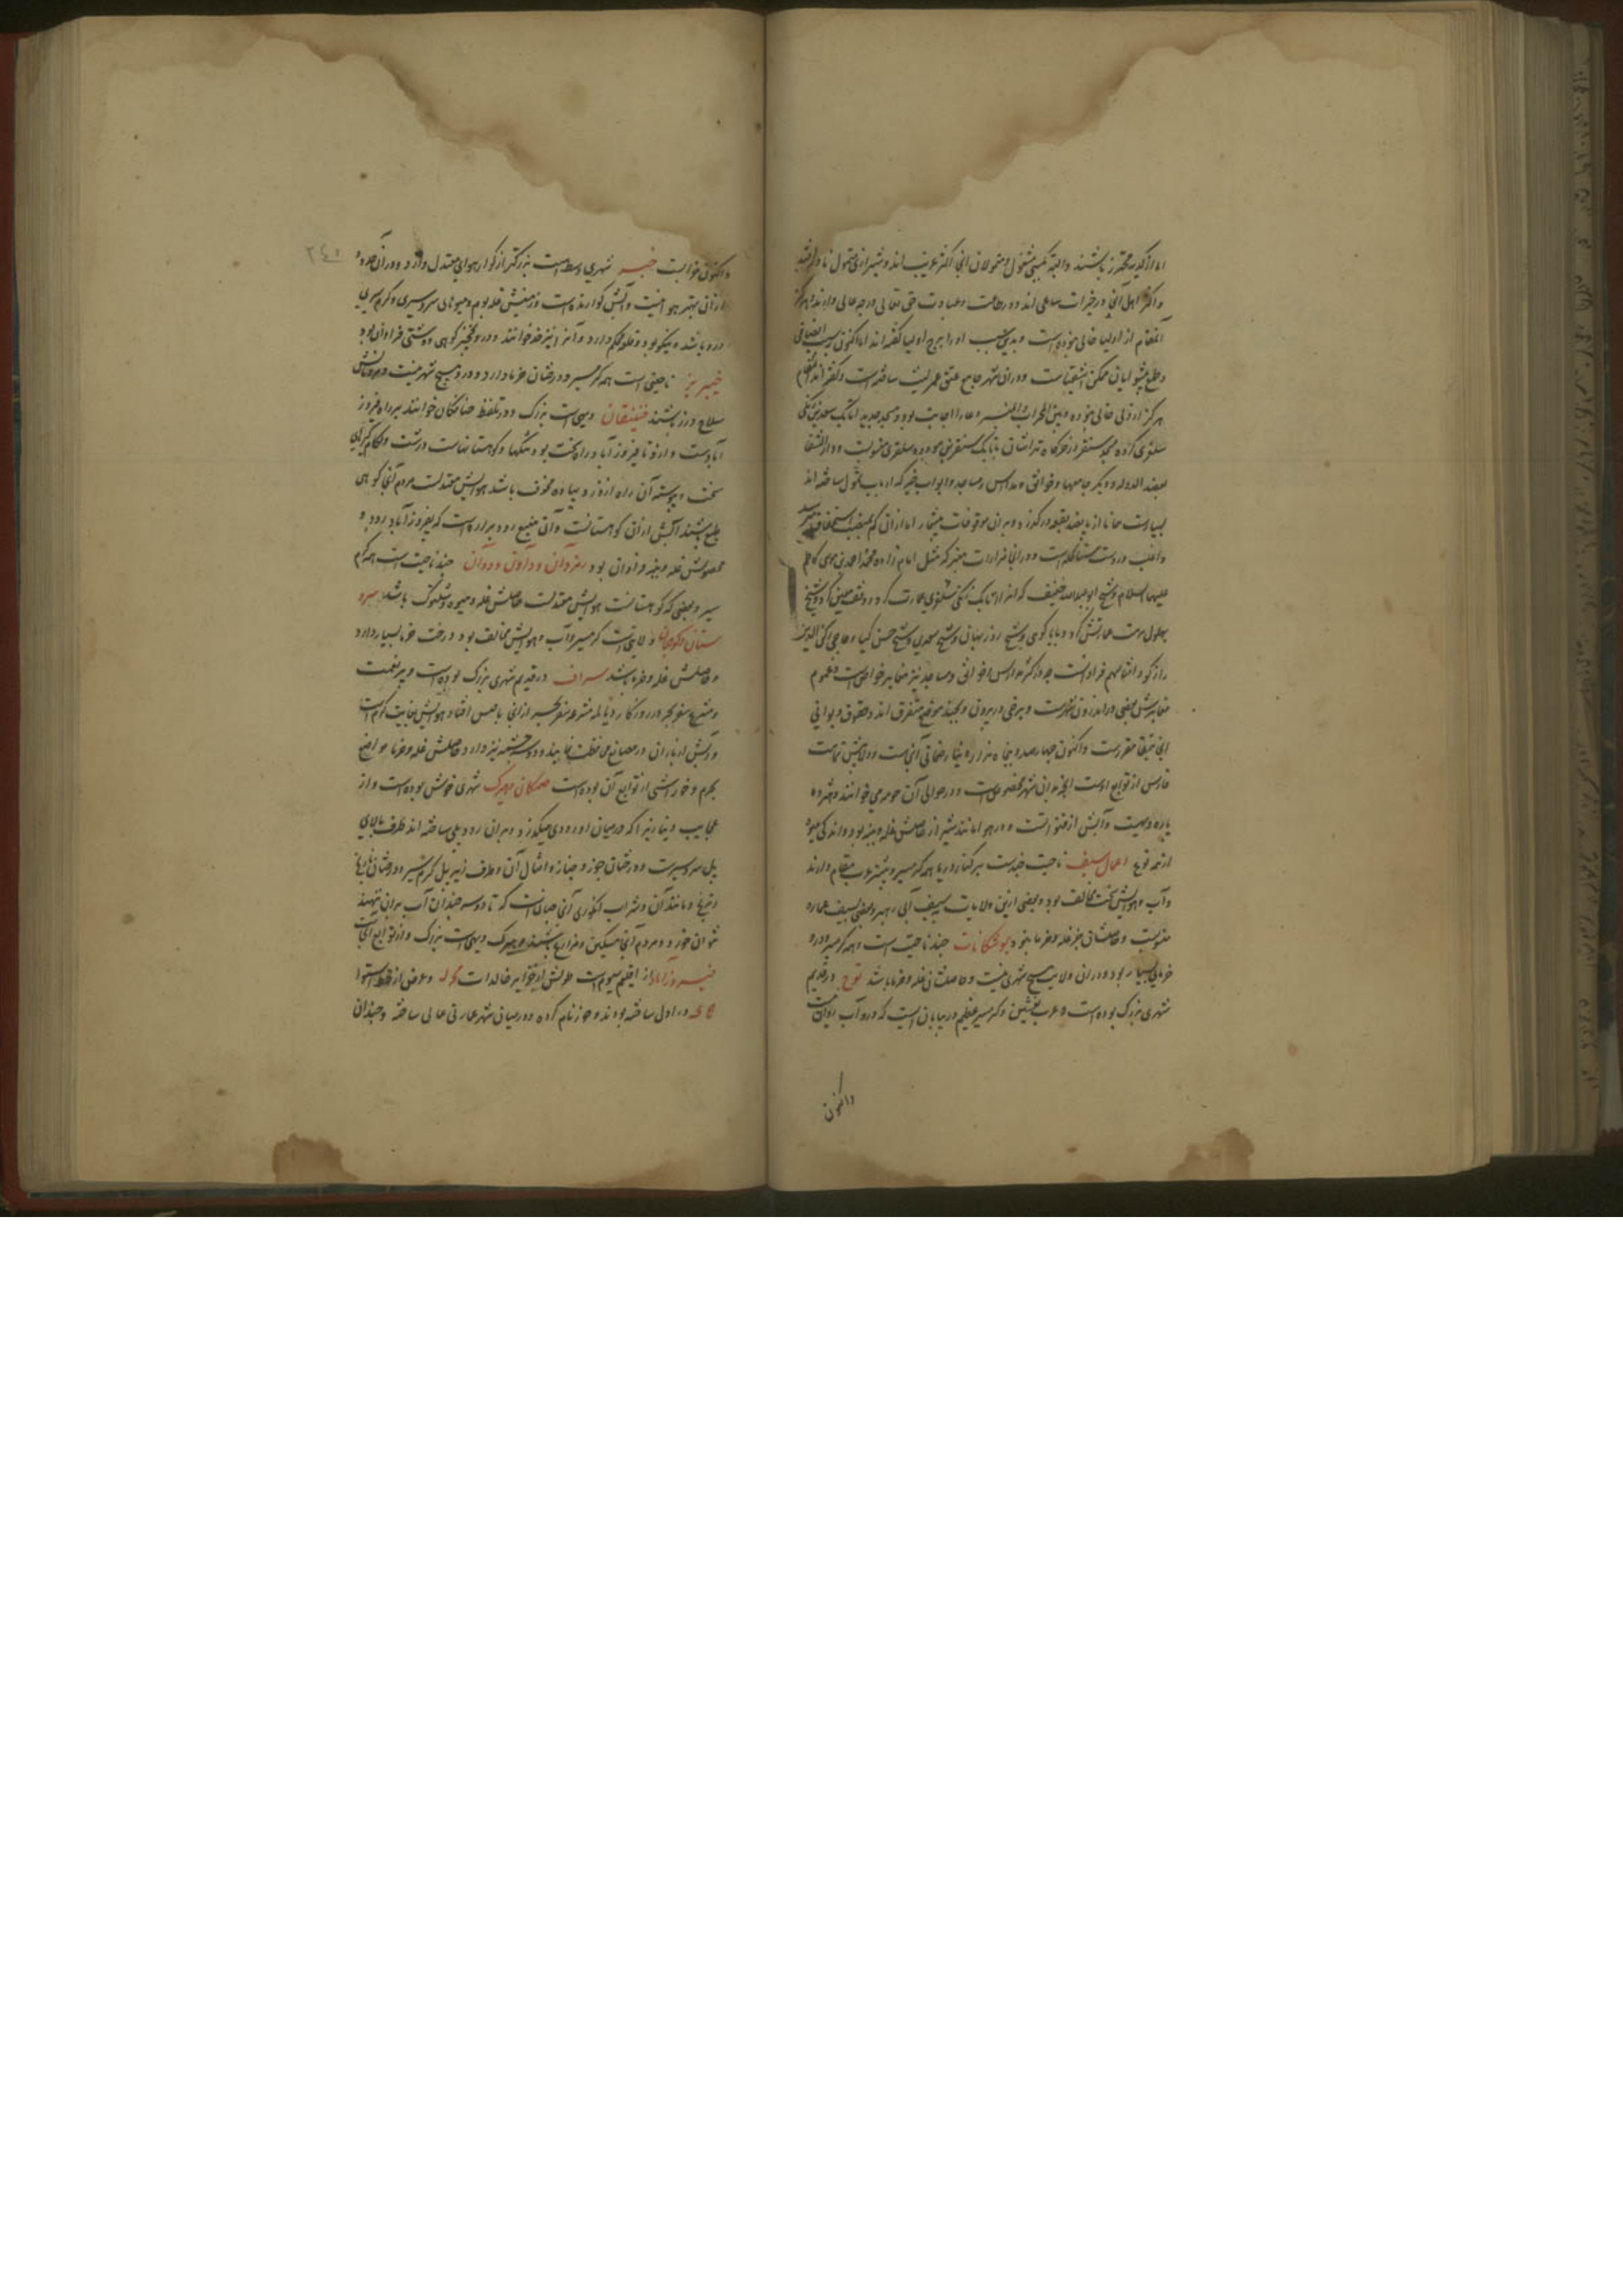 اما از کدیه محترز باشند و البته بکسبی مشغول و متمولان آنجا اکثر غریب‌اند و شیرازی متمول نادر افتد
و اکثر اهل آنجا در خیرات ساعی‌اند و در طاعت و عبادت حق تعالی درجه عالی دارند و هرگز
آن مقام از اولیا خالی نبوده است و بدین سبب او را برج اولیا گفته‌اند اما اکنون بسبب
و طمع پیشوایان مکمن اشقیاست و در آن شهر جامع عتیق عمرو لیث ساخته است و گفته‌اند
هرگز از ولی خالی نبوده و بین المحراب و المنبر دعا را اجابت بود و مسجد جدید اتابک سعد بن زنگی
سلغری کرده و مسجد سنقر در خرگاه تراشان باتابک سنقر بن مودود سلغری منسوبست و دار الشفا
بعضد الدوله و دیگر جامعها و خوانق و مدارس و مساجد و ابواب خیر که ارباب تمول ساخته‌اند
بسیارست همانا از پانصد بقعه درگذرد و بر آن موقوفات بیشمار اما از آن کم بمنصب استحقاق میرسد
و اغلب در دست مستاکله است و در آنجا مزارات متبرکه مثل امام زاده محمد و احمد بن موسی کاظم
علیهما السلام و شیخ ابو عبدالله خفیف که آنرا اتابک زنگی سلغری عمارت کرد و وقف معین کرد و شیخ
بهلول مرمت عمارتش کرد و بابا کوهی و شیخ روزبهان و شیخ سعدی و شیخ حسن کیا و حاجی رکن الدین
رازگو و امثالهم فراوانست و در اکثر مدارس و خوانق و مساجد نیز مقابر خواص است و عموم
مقابرش بعضی در اندرون شهرست و برخی در بیرون و بچند موضع متفرق‌اند و حقوق دیوانی
آنجا بتمغا مقررست و اکنون چهارصد و پنجاه هزار دینار ضمانی آنجاست و ولایتش تمامت
فارس از توابع اوست آنچه بدان شهر مخصوص است و در حوالی آن حومه می‌خوانند و هژده
پاره دیهست و آبش از قنواتست و در هوا مانند شیراز حاصلش غله و پنبه بود و اندکی میوه
از همه نوع اعمال سیف ناحیت چندست بر کنار دریا همه گرمسیر و بیشتر عرب مقام دارند
و آب و هوایش سخت مخالف بود و بعضی از این ولایات بسیف ابی زهیر و بعضی بسیف عماره
منسوبست و حاصلشان بجز غله و خرما نبود بوشکانات چند ناحیت است و همه گرمسیر و درو
خرمای بسیار بود و در آن ولایت هیچ شهری نیست و حاصلشان غله و خرما باشد توج در قدیم
شهری بزرگ بوده است و عرب نشین و گرمسیر عظیم در بیابان است که درو آب روان نیست
و اکنون
و اکنون خرابست خبر شهری وسط است بزرگتر از کوار هوای معتدل دارد و در آن حدود
از آن بهتر هوا نیست و آبش گوارنده است و زمینش غله بوم و میوهای سردسیری و گرمسیری
درو باشد و نیکو بود و قلعه محکم دارد و آنرا تیر خدا خوانند و درو نخجیر کوهی و دشتی فراوان بود
خنیزیر ناحیتی است همه گرمسیر و درختان خرما دارد و درو هیچ شهر نیست و مردمانش
سلاح ورز باشند خنیفقان دیهی است بزرگ و در تلفظ خنافکان خوانند بر راه فیروز
آبادست و از و تا فیروزآباد راه سخت بود و تنگها و کوهستانهاست درشت و لگام گیرهای
سخت و پیوسته آن راه از دزد پیاده مخوف باشد هوایش معتدلست مردم آنجا کوهی
طبع باشند آبش از آن کوهستانست و آن منبع رود برازه است که بفیروزآباد رود و
محصولش غله و پنبه فراوان بود رمزوان و داوین و دوان چند ناحیت است همه گرم
سیر و بعضی که کوهستانست هوایش معتدلست حاصلش غله و میوه و شلتوک باشد سرو
ستان و کوبنجان ولایتی است گرمسیر و آب و هوایش مخالف بود و درخت خرما بسیار دارد
و حاصلش غله و خرما باشد سیراف در قدیم شهری بزرگ بوده است و پر نعمت
و مشرع سفر بحر در روزگار دیالمه مشرع سفر بحر از آنجا با قیس افتاد هوایش بغایت گرم است
و آبش از باران در مصانع محافظت نمایند و دو سه چشمه نیز دارد حاصلش غله و خرما مواضع
نجیرم و خورشی از توابع آن بوده است صمکان و هیرک شهری خوش بوده است و از
عجایب دنیا زیرا که در میان او رودی میگذرد و بر آن رود پلی ساخته‌اند طرف بالای
پل سردسیرست و درختان جوز و چنار و امثال آن و طرف زیر پل گرمسیر و درختان نارنج
و ترنج و مانند آن و شراب انگوری آنجا چنانست که تا دو سه چندان آب بر آن ننهند
نتوان خورد و مردم آنجا مسکین و مزارع باشند و هیرک دیهی است بزرگ و از توابع آنجاست
فیروزآباد از اقلیم سیوم است طولش از جزایر خالدات و عرض از خط استوا
در اول ساخته بودند و جور نام کرده و در میان شهر عمارتی عالی ساخته و چندان